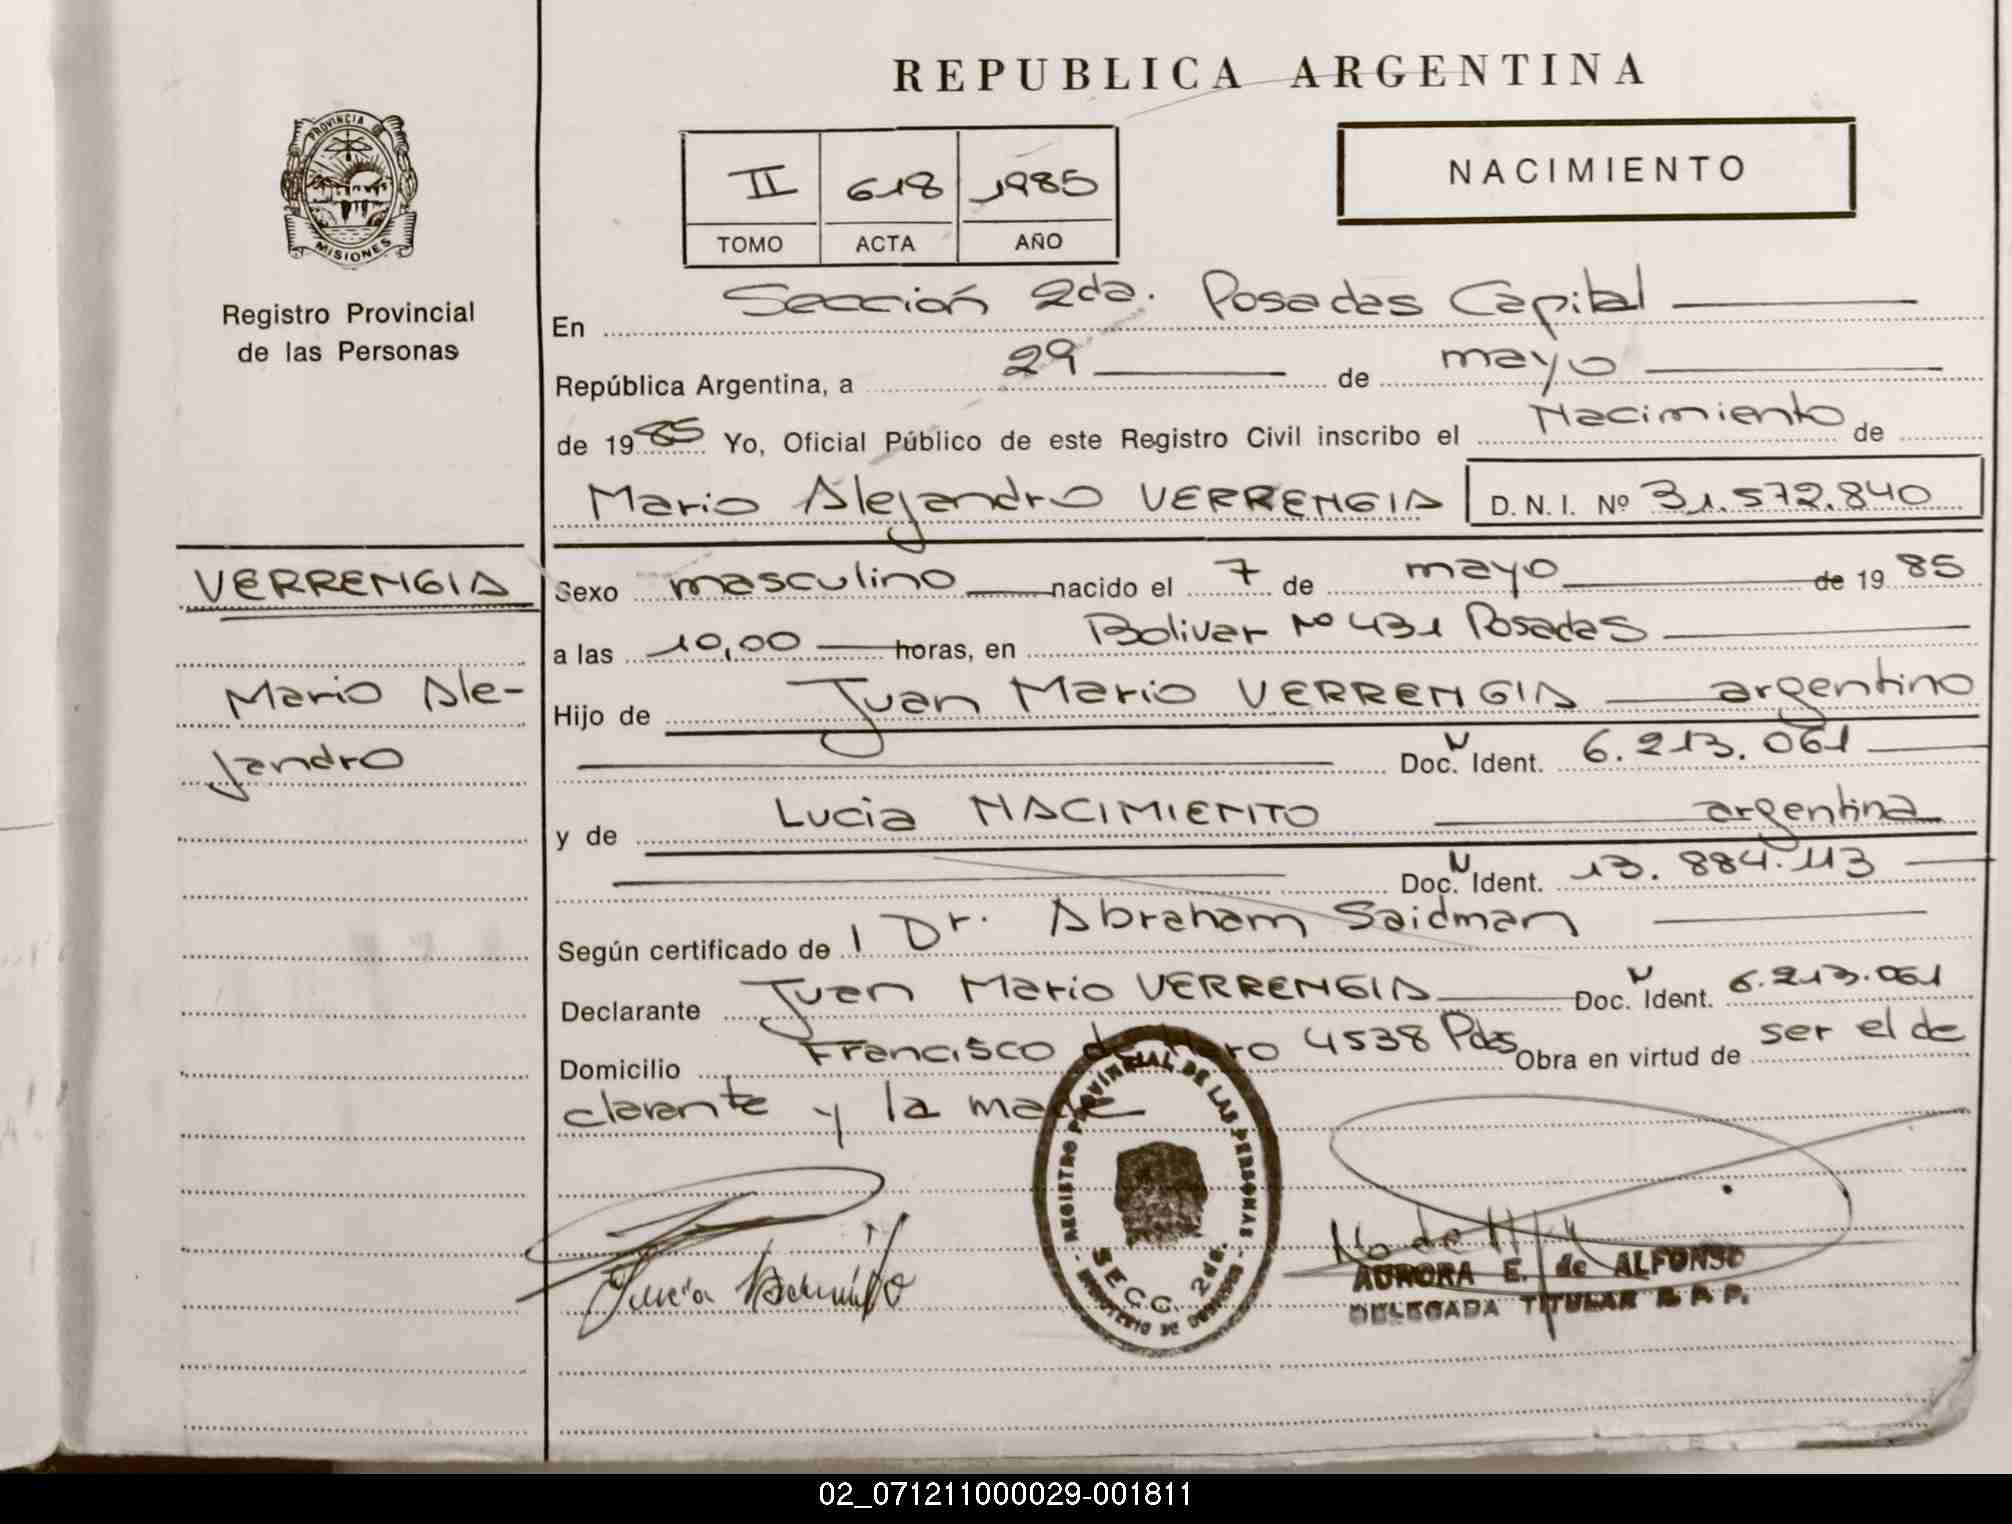 REPUBLICA ARGENTINA
PROVINCIA D
MISIONES
Registro Provincial
de las Personas
II 618 1985
TOMO ACTA AÑO
NACIMIENTO
En Sección 2da. Posadas Capital
República Argentina, a 29 de mayo
de 1985 Yo, Oficial Público de este Registro Civil inscribo el Nacimiento de
Mario Alejandro VERRENGIA D. N. I. Nº 31.572.840
VERRENGIA
Mario Ale-
jandro
Sexo masculino nacido el 7 de mayo de 1985
a las 10,00 horas, en Bolivar Nº 431 Posadas
Hijo de Juan Mario VERRENGIA argentino
Doc. Ident. 6.213.061
y de Lucia NACIMIENTO argentina
Doc. Ident. 13.884.113
Según certificado de Dr. Abraham Saidman
Declarante Juan Mario VERRENGIA Doc. Ident. 6.213.061
Domicilio Francisco de Haro 4538 Pdas Obra en virtud de ser el de
clarante y la madre
REGISTRO PROVINCIAL DE LAS PERSONAS
SECC. 2da.
Lucia Nacimiento
AURORA E. de ALFONSO
DELEGADA TITULAR R. P. P.
02_071211000029-001811